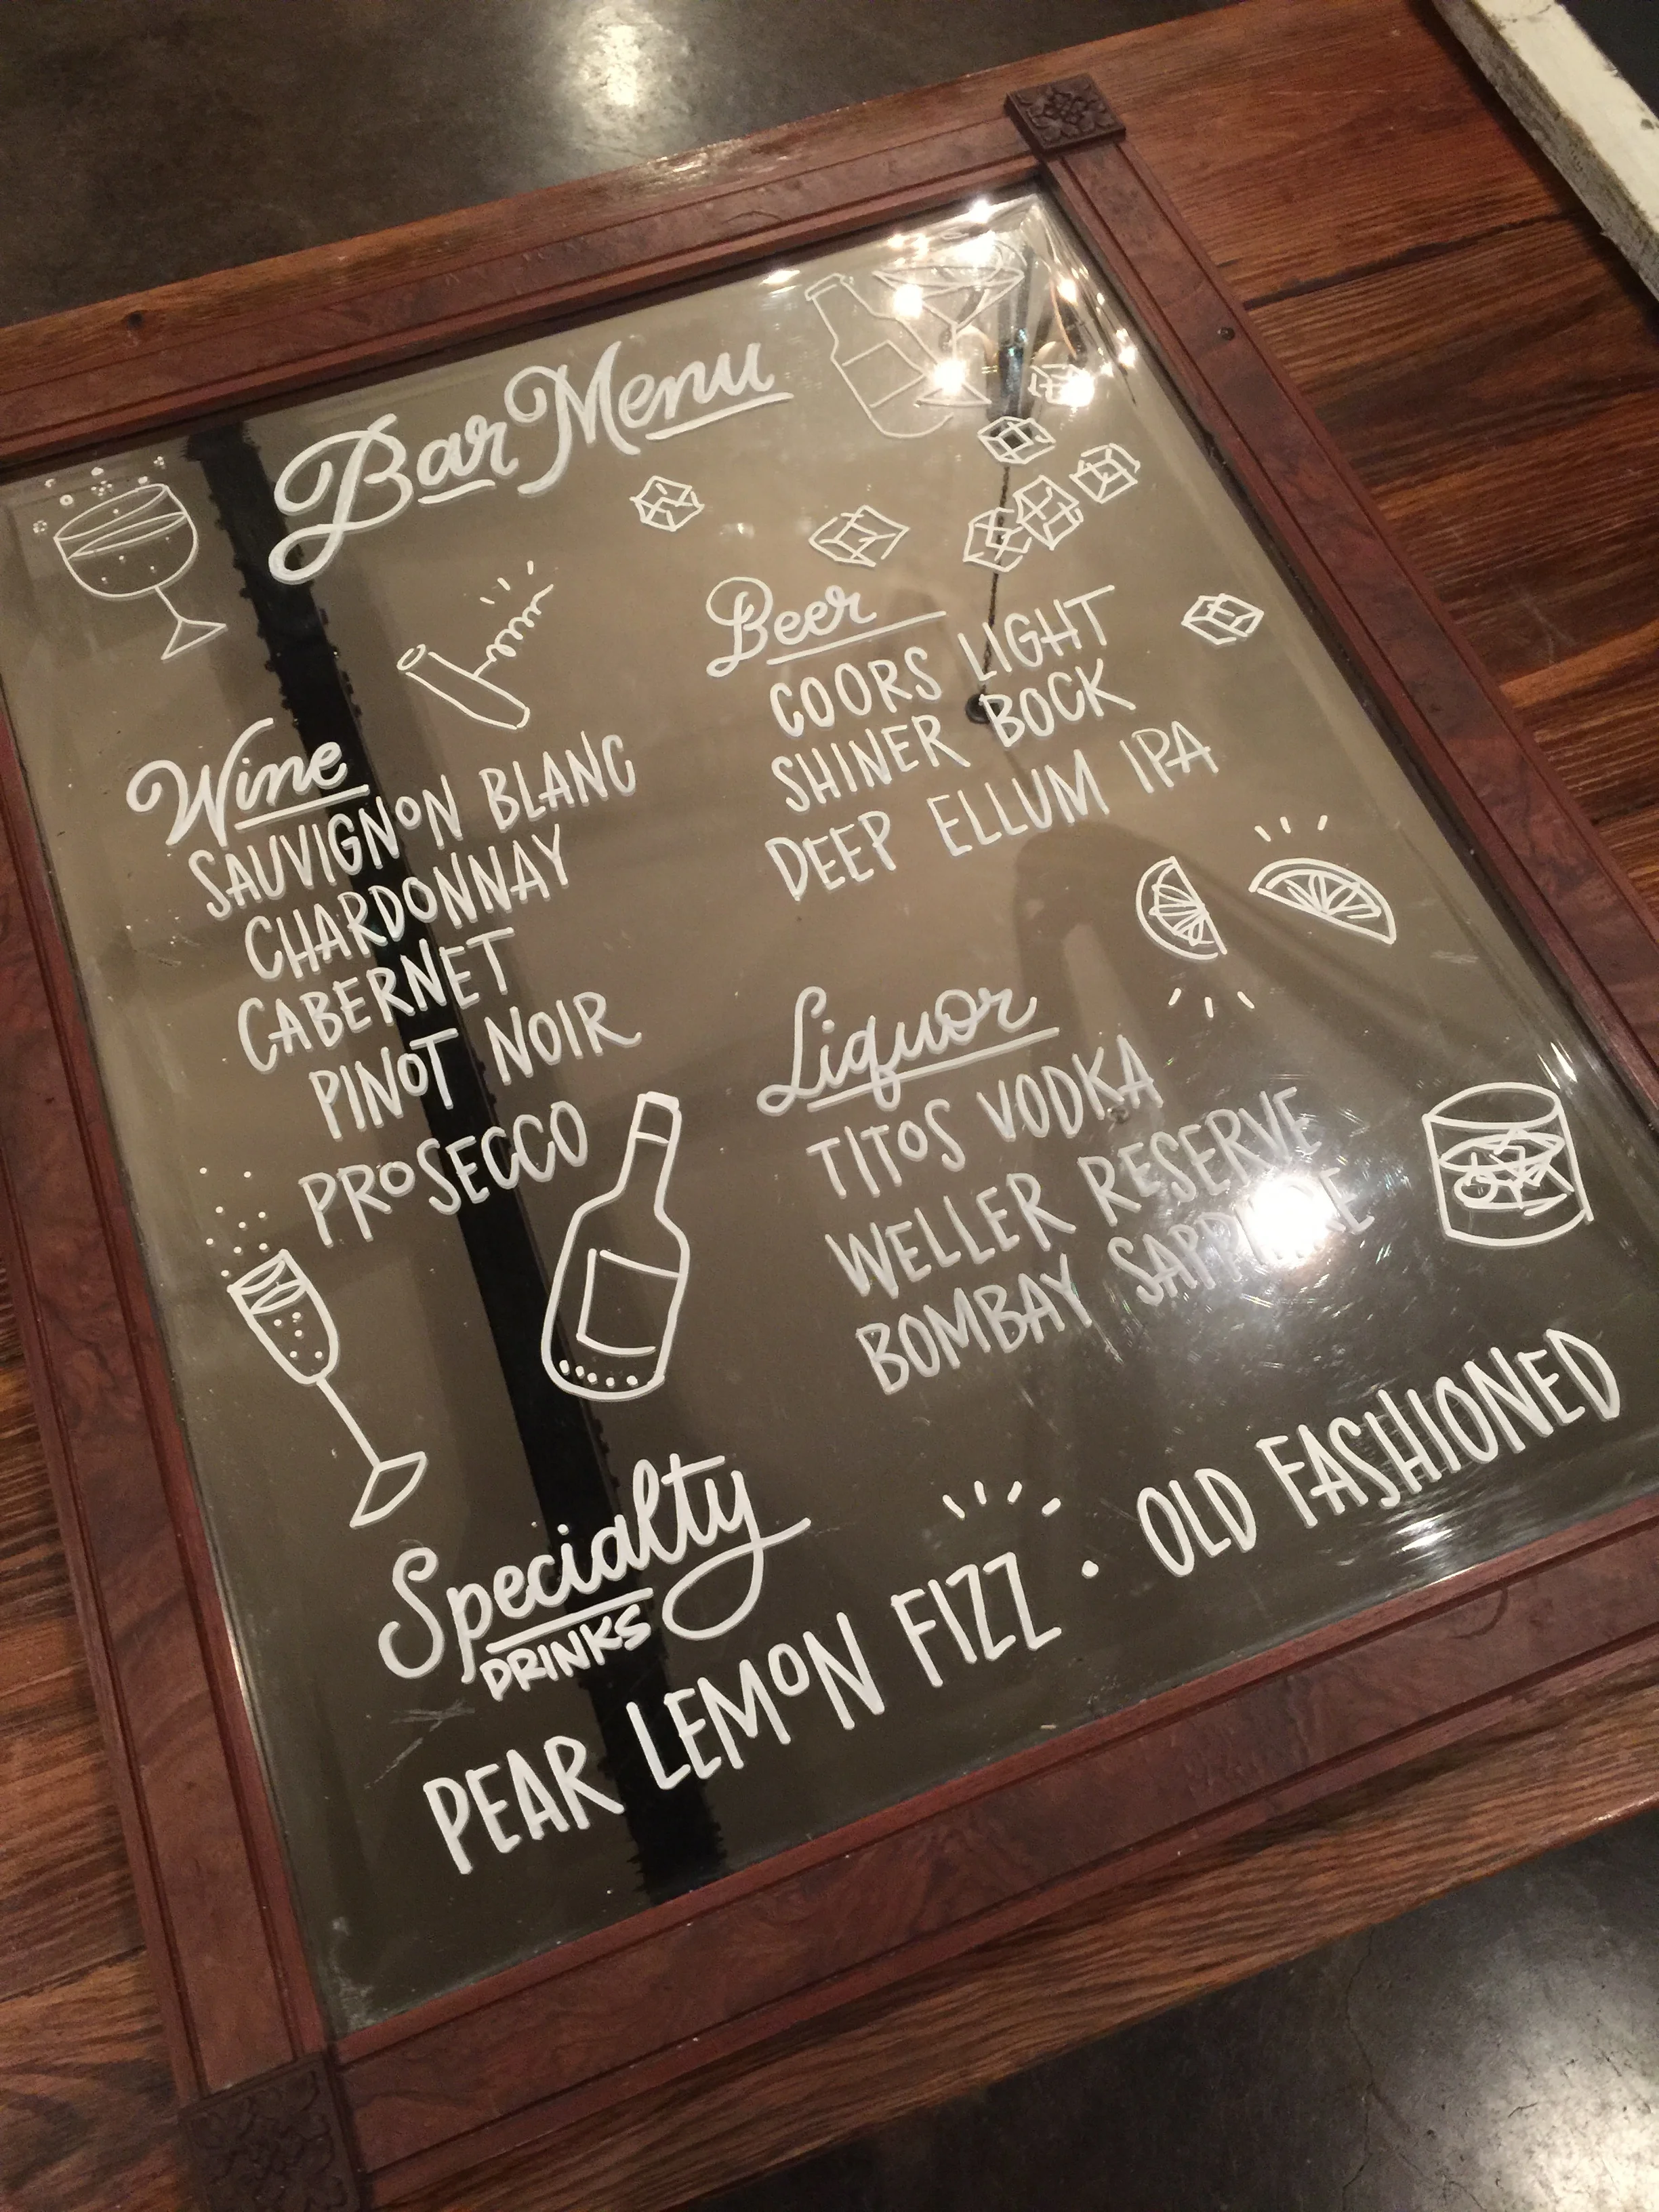 Bar Menu
Wine
SAUVIGNON BLANC
CHARDONNAY
CABERNET
PINOT NOIR
PROSECCO
Beer
COORS LIGHT
SHINER BOCK
DEEP ELLUM IPA
Liquor
TITOS VODKA
WELLER RESERVE
BOMBAY SAPPHIRE
Specialty
DRINKS
PEAR LEMON FIZZ • OLD FASHIONED